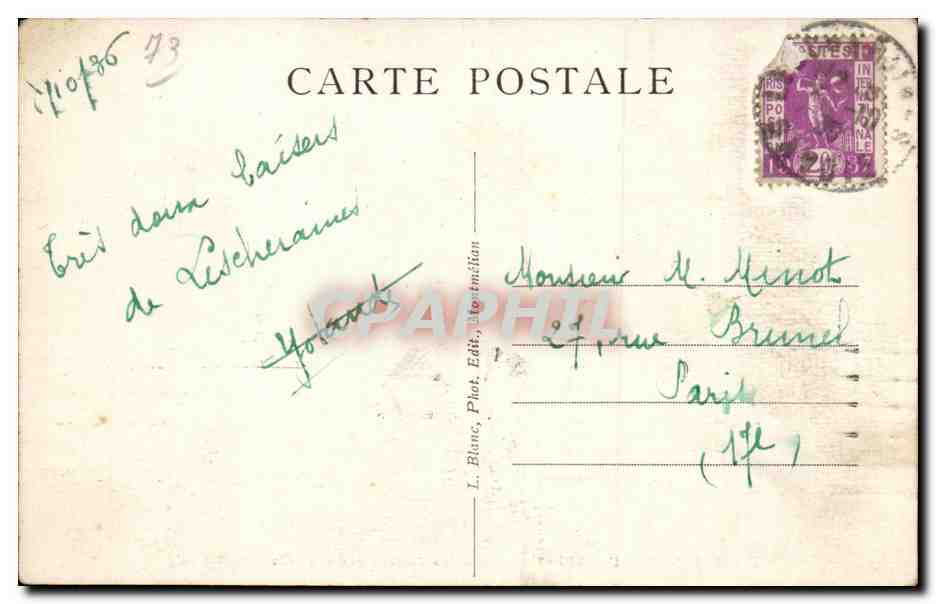 73
CARTE POSTALE
Très doux baisers
de Lescheraines
Yolande
L. Blanc, Phot. Edit., Montmélian
CPAPHIL
POSTES
INTERNATIONALE
20
37
Monsieur M. Minot
27, rue Brunel
Paris
(17e)